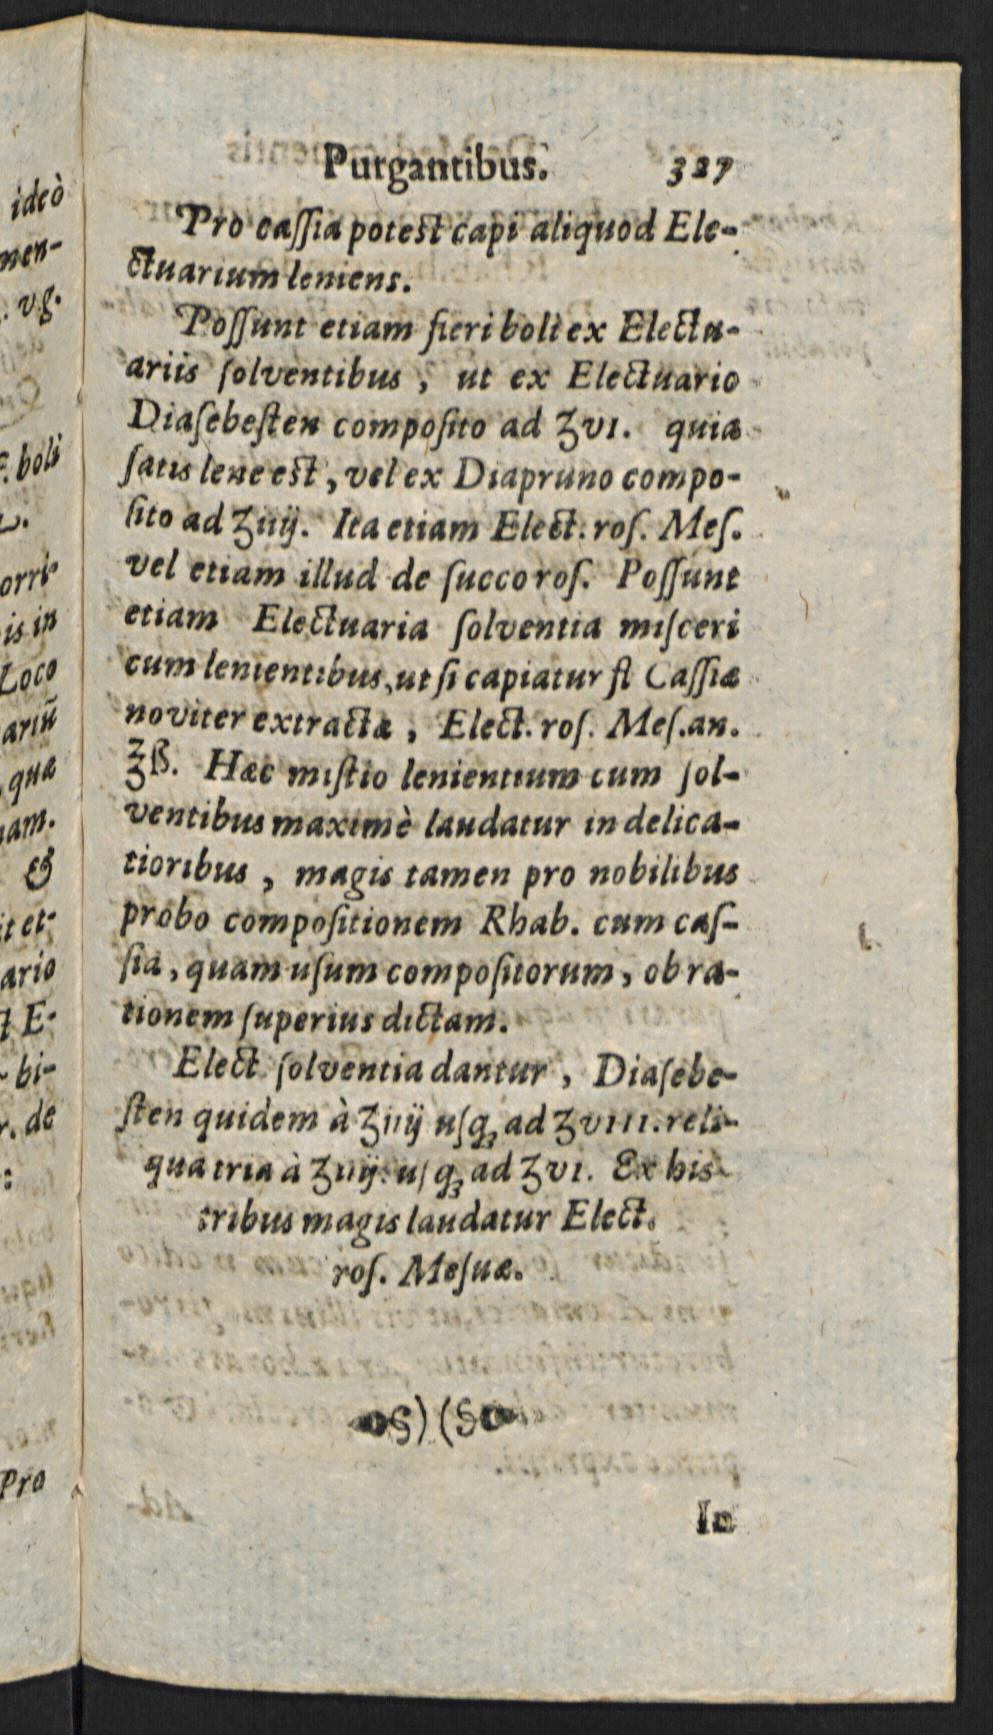 Purgantibus. 327
Pro caſſia poteſt capi aliquod Ele-
ctuarium leniens.
Poſſunt etiam fieri boli ex Electu-
ariis ſolventibus, ut ex Electuario
Diaſebeſten compoſito ad ʒvi. quia
ſatis lene eſt, vel ex Diapruno compo-
ſito ad ʒiiij. Ita etiam Elect. roſ. Meſ.
vel etiam illud de ſucco roſ. Poſſunt
etiam Electuaria ſolventia miſceri
cum lenientibus, ut ſi capiatur fl Caſſiæ
noviter extractæ, Elect. roſ. Meſ. an.
ʒß. Hæc miſtio lenientium cum ſol-
ventibus maximè laudatur in delica-
tioribus, magis tamen pro nobilibus
probo compoſitionem Rhab. cum caſ-
ſia, quam uſum compoſitorum, ob ra-
tionem ſuperius dictam.
Elect. ſolventia dantur, Diaſebe-
ſten quidem à ʒiiij uſq; ad ʒviii. reli-
qua tria à ʒiiij. uſq; ad ʒvi. Ex his
tribus magis laudatur Elect.
roſ. Meſuæ.
In
ideò
men-
. vg.
boli
L.
orri-
is in
Loco
ariū
, quæ
nam.
&
it et-
ario
E-
bi-
r. de
:
Pro